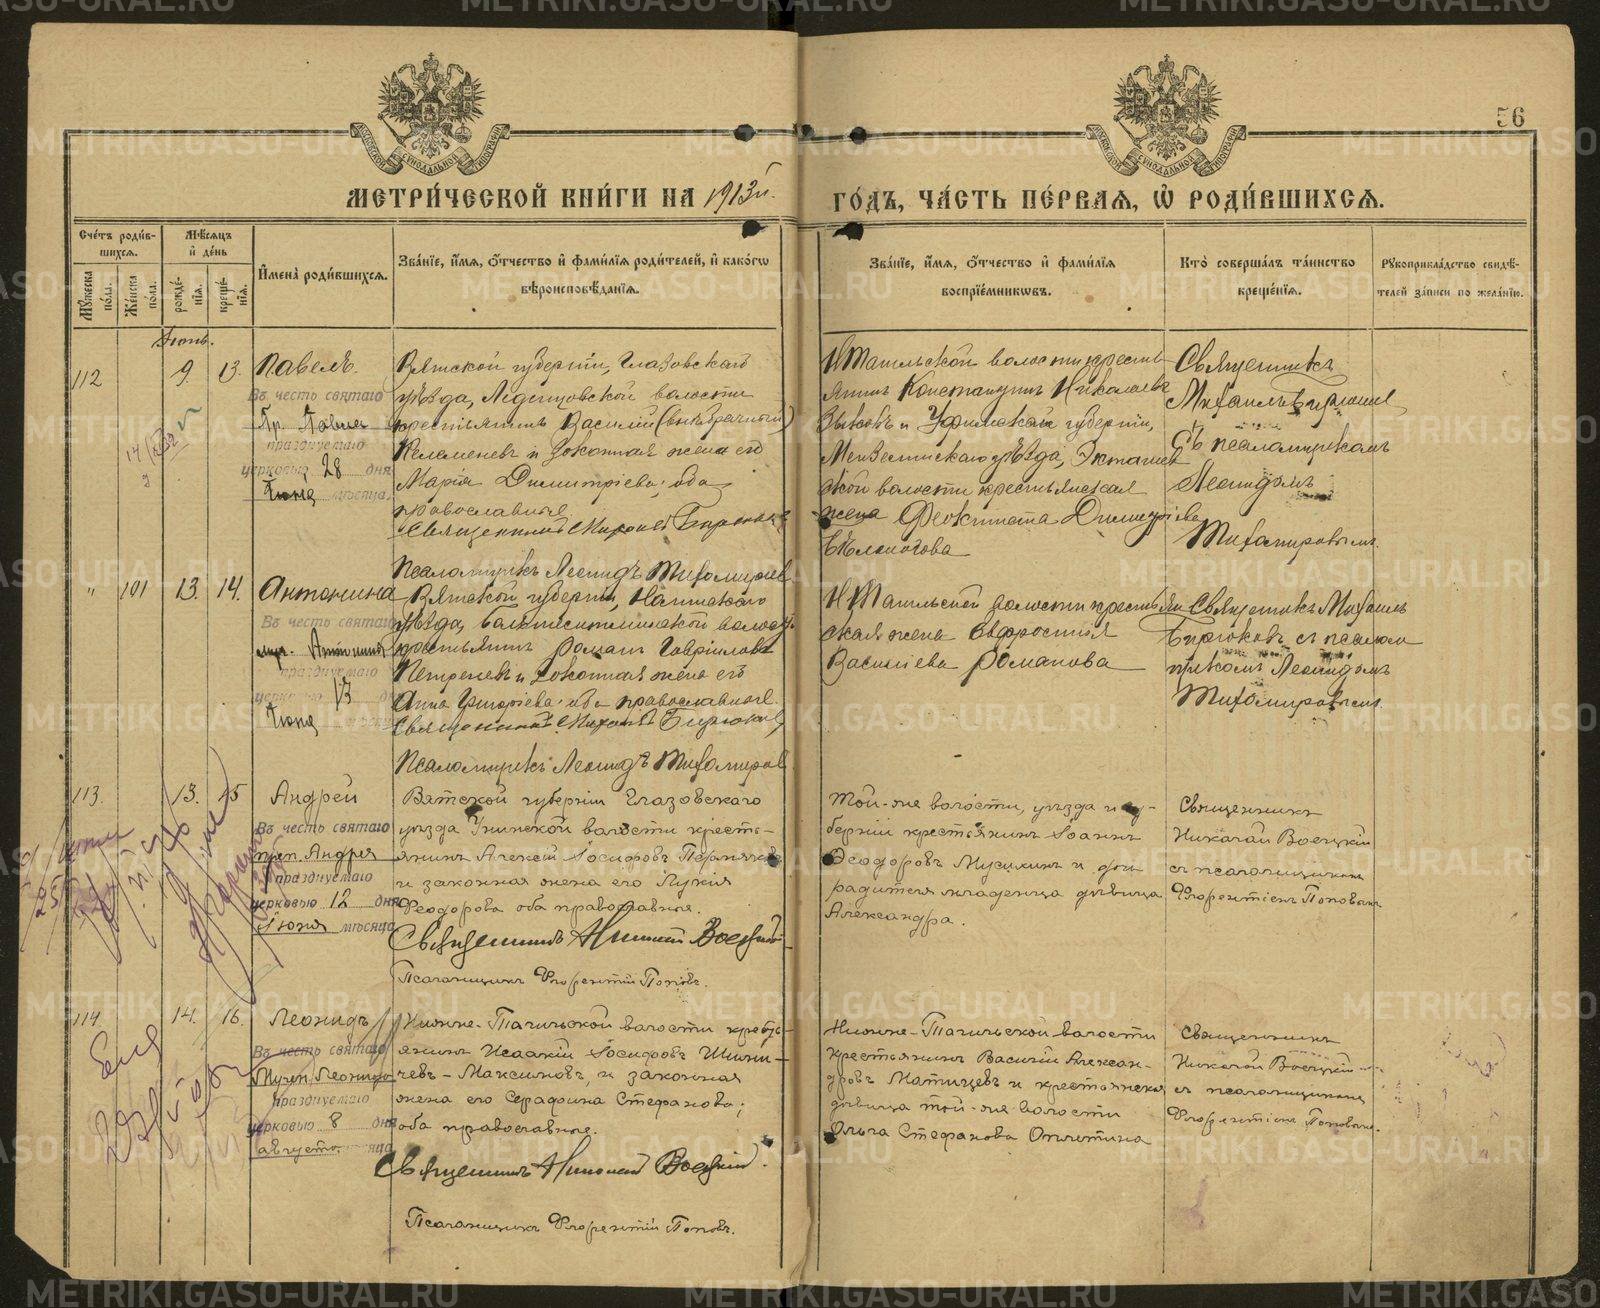 56
МЕТРИ́ЧЕСКОЙ КНИ́ГИ НА 1913й.
ГО́ДЪ, ЧА́СТЬ ПЕ́РВАѦ, Ѡ РОДИ́ВШИХСѦ.
Сче́тъ роди́вшихсѧ.
Мꙋ́жеска по́ла.
Же́нска по́ла.
Мѣ́сѧцъ и́ де́нь
рожде́нїѧ.
креще́нїѧ.
И́мена̀ роди́вшихсѧ.
Зва́нїе, и́мѧ, ѻ́тчество и́ фами́лїѧ роди́телей, и́ како́гѡ
вѣроисповѣ́данїѧ.
Зва́нїе, и́мѧ, ѻ́тчество и́ фами́лїѧ
воспрїе́мникѡвъ.
Кто̀ соверша́лъ та́инство
креще́нїѧ.
Рꙋкоприкла́дство свидѣ́-
телей за́писи по жела́нїю.
Іюнь.
112
9.
13.
Павелъ.
Въ честь святаго
Пр. Павла
празднуемаго
церковью 28 дня
Іюня мѣсяца
Вятской губерніи, Глазовскаго
уѣзда, волости
крестьянинъ Василій (внѣбрачный)
и законная жена его
Марія Димитріева; оба
православные
Священникъ Михаилъ Бирюковъ
Псаломщикъ Леонидъ Тихомировъ
Н Тагильской волости кресть-
янинъ Константинъ Николаевъ
и Уфимской губерніи,
Мензелинскаго уѣзда,
ской волости крестьянская
жена Феоктиста Димитріева
Священникъ
Михаилъ Бирюковъ
Съ псаломщикомъ
Леонидомъ
Тихомировымъ.
"
101
13.
14.
Антонина
Въ честь святаго
муч. Антонины
празднуемаго
церковью 13 дня
Іюня
Вятской губерніи,
уѣзда, волости
крестьянинъ Романъ Гавріиловъ
и законная жена его
Анна Григоріева; оба православные.
Священникъ Михаилъ Бирюковъ
Псаломщикъ Леонидъ Тихомировъ
Н Тагильской волости крестьян
ская жена Евфросинія
Василіева Романова
Священникъ Михаилъ
Бирюковъ съ псалом
щикомъ Леонидомъ
Тихомировымъ.
113.
13.
15
Андрей
Въ честь святаго
преп. Андрея
празднуемаго
церковью 12 дня
Іюня мѣсяца
Вятской губерніи Глазовскаго
уѣзда Унинской волости кресть-
янинъ Алексій Іосифовъ Пермяковъ
и законная жена его Лукія
Феодорова оба православные.
Священникъ Николай Воецкій
Псаломщикъ Флорентій Поповъ.
Той-же волости, уѣзда и гу-
берніи крестьянинъ Іоаннъ
Феодоровъ Мусихинъ и дочь
родителя младенца дѣвица
Александра.
Священникъ
Николай Воецкій
съ псаломщикомъ
Флорентіемъ Поповымъ
114
14.
16.
Леонидъ
Въ честь святаго
Муч. Леонида
празднуемаго
церковью 8 дня
августа мѣсяца
Нижне-Тагильской волости кресть-
янинъ Исаакій Іосифовъ
-Максимовъ, и законная
жена его Серафима Стефанова;
оба православные.
Священникъ Николай Воецкій.
Псаломщикъ Флорентій Поповъ.
Нижне-Тагильской волости
крестьянинъ Василій Алексан-
дровъ и крестьянская
дѣвица той-же волости
Ольга Стефанова
Священникъ
Николай Воецкій
съ псаломщикомъ
Флорентіемъ Поповымъ.
METRIKI.GASO-URAL.RU